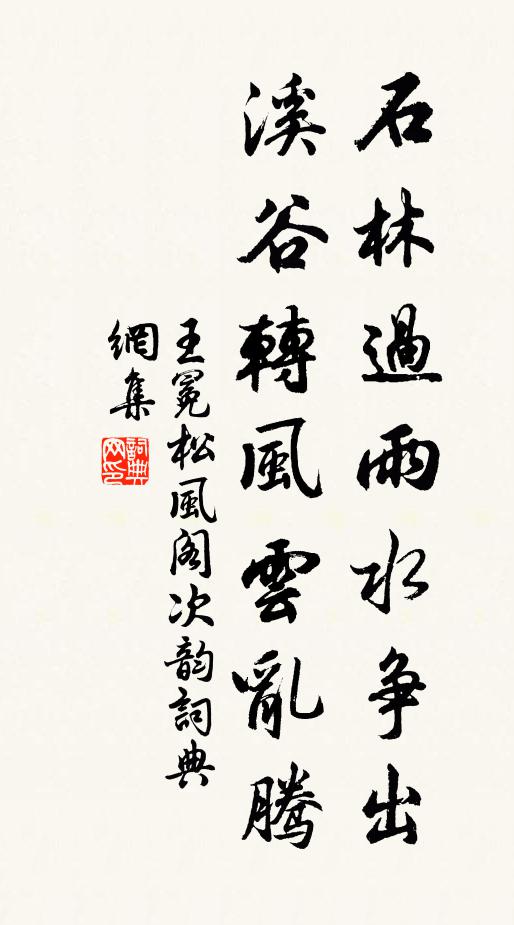 石林過雨水争出
溪谷轉風雲亂騰
王冕松風阁次韵詞典
網集
詞典网印